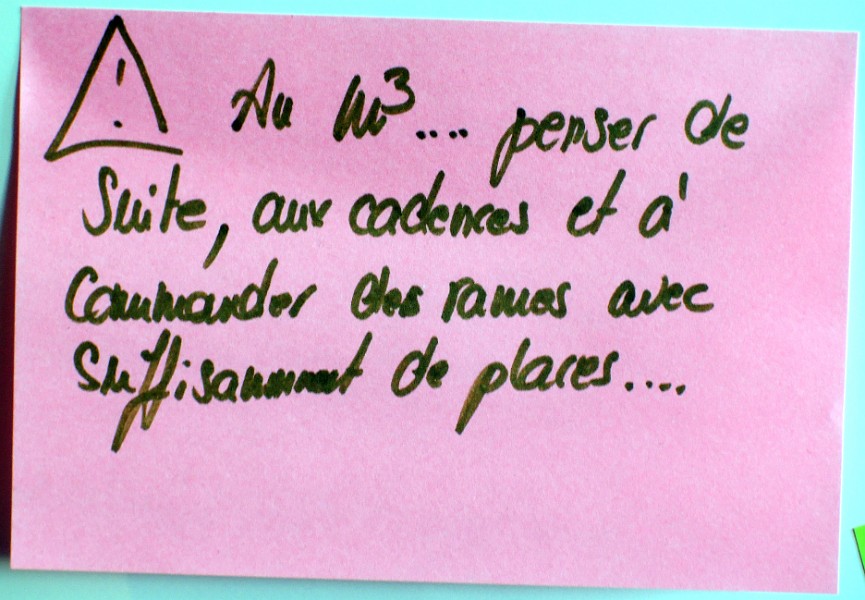 ! Au m³.... penser de
Suite, aux cadences et à
Commander des rames avec
Suffisamment de places....